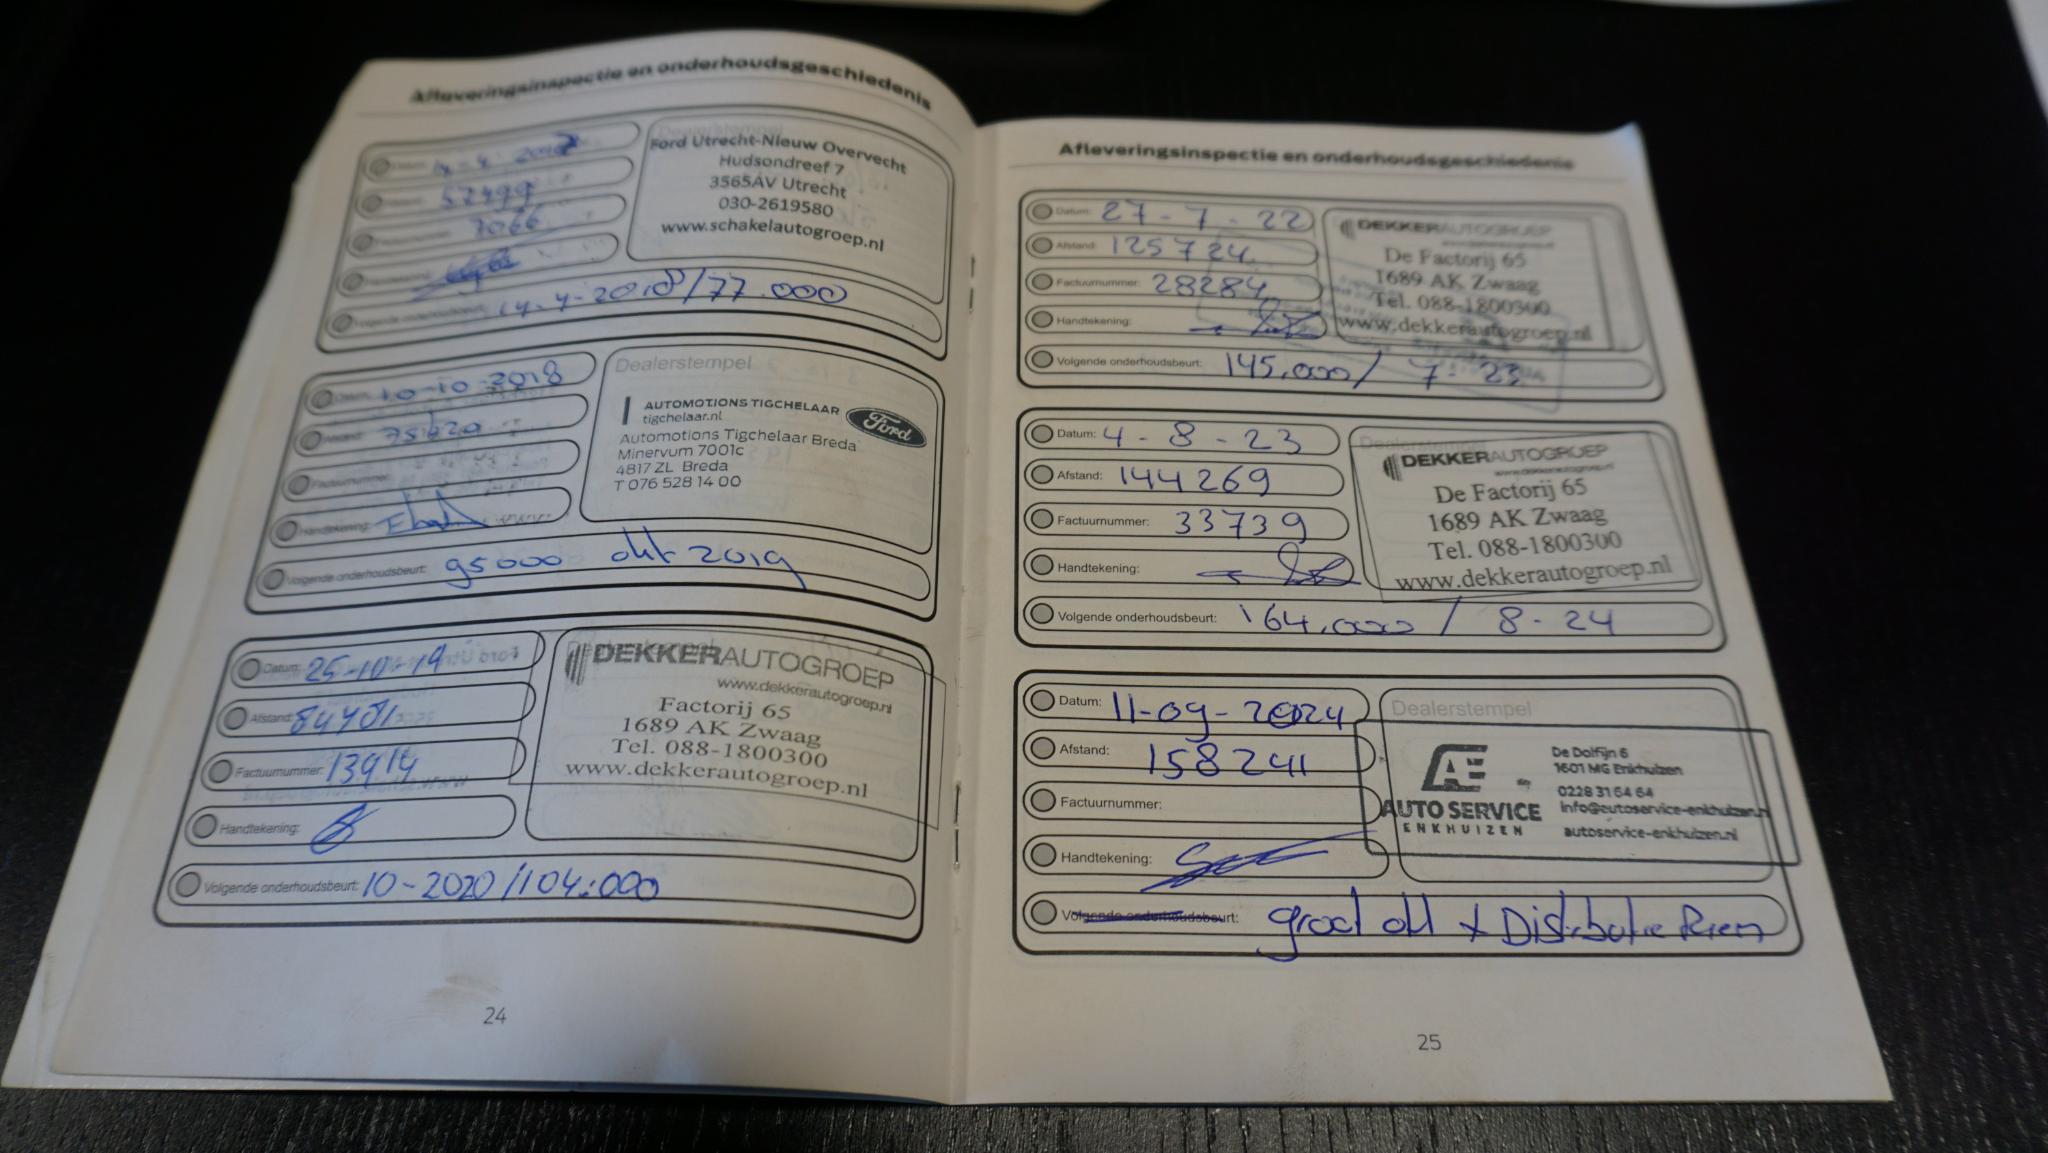 Afleveringsinspectie en onderhoudsgeschiedenis
Datum: 14-4-2017
Afstand: 57499
Factuurnummer: 7066
Handtekening:
Volgende onderhoudsbeurt: 14-4-2018/77.000
Dealerstempel
Ford Utrecht-Nieuw Overvecht
Hudsondreef 7
3565AV Utrecht
030-2619580
www.schakelautogroep.nl
Datum: 10-10-2018
Afstand: 75620
Factuurnummer:
Handtekening:
Volgende onderhoudsbeurt: 95000 okt 2019
Dealerstempel
AUTOMOTIONS TIGCHELAAR
tigchelaar.nl
Ford
Automotions Tigchelaar Breda
Minervum 7001c
4817 ZL Breda
T 076 528 14 00
Datum: 25-10-19
Afstand: 84481
Factuurnummer: 13914
Handtekening:
Volgende onderhoudsbeurt: 10-2020/104.000
Dealerstempel
DEKKERAUTOGROEP
www.dekkerautogroep.nl
Factorij 65
1689 AK Zwaag
Tel. 088-1800300
www.dekkerautogroep.nl
24
Afleveringsinspectie en onderhoudsgeschiedenis
Datum: 27-7-22
Afstand: 125724
Factuurnummer: 28284
Handtekening:
Volgende onderhoudsbeurt: 145.000/ 7-23
DEKKERAUTOGROEP
De Factorij 65
1689 AK Zwaag
Tel. 088-1800300
www.dekkerautogroep.nl
Datum: 4-8-23
Afstand: 144269
Factuurnummer: 33739
Handtekening:
Volgende onderhoudsbeurt: 164.000 / 8-24
Dealerstempel
DEKKERAUTOGROEP
www.dekkerautogroep.nl
De Factorij 65
1689 AK Zwaag
Tel. 088-1800300
www.dekkerautogroep.nl
Datum: 11-09-2024
Afstand: 158241
Factuurnummer:
Handtekening:
Volgende onderhoudsbeurt: groot ond + Distributie Riem
Dealerstempel
AE
AUTO SERVICE
ENKHUIZEN
De Dolfijn 6
1601 MG Enkhuizen
0228 31 64 64
info@autoservice-enkhuizen.nl
autoservice-enkhuizen.nl
25